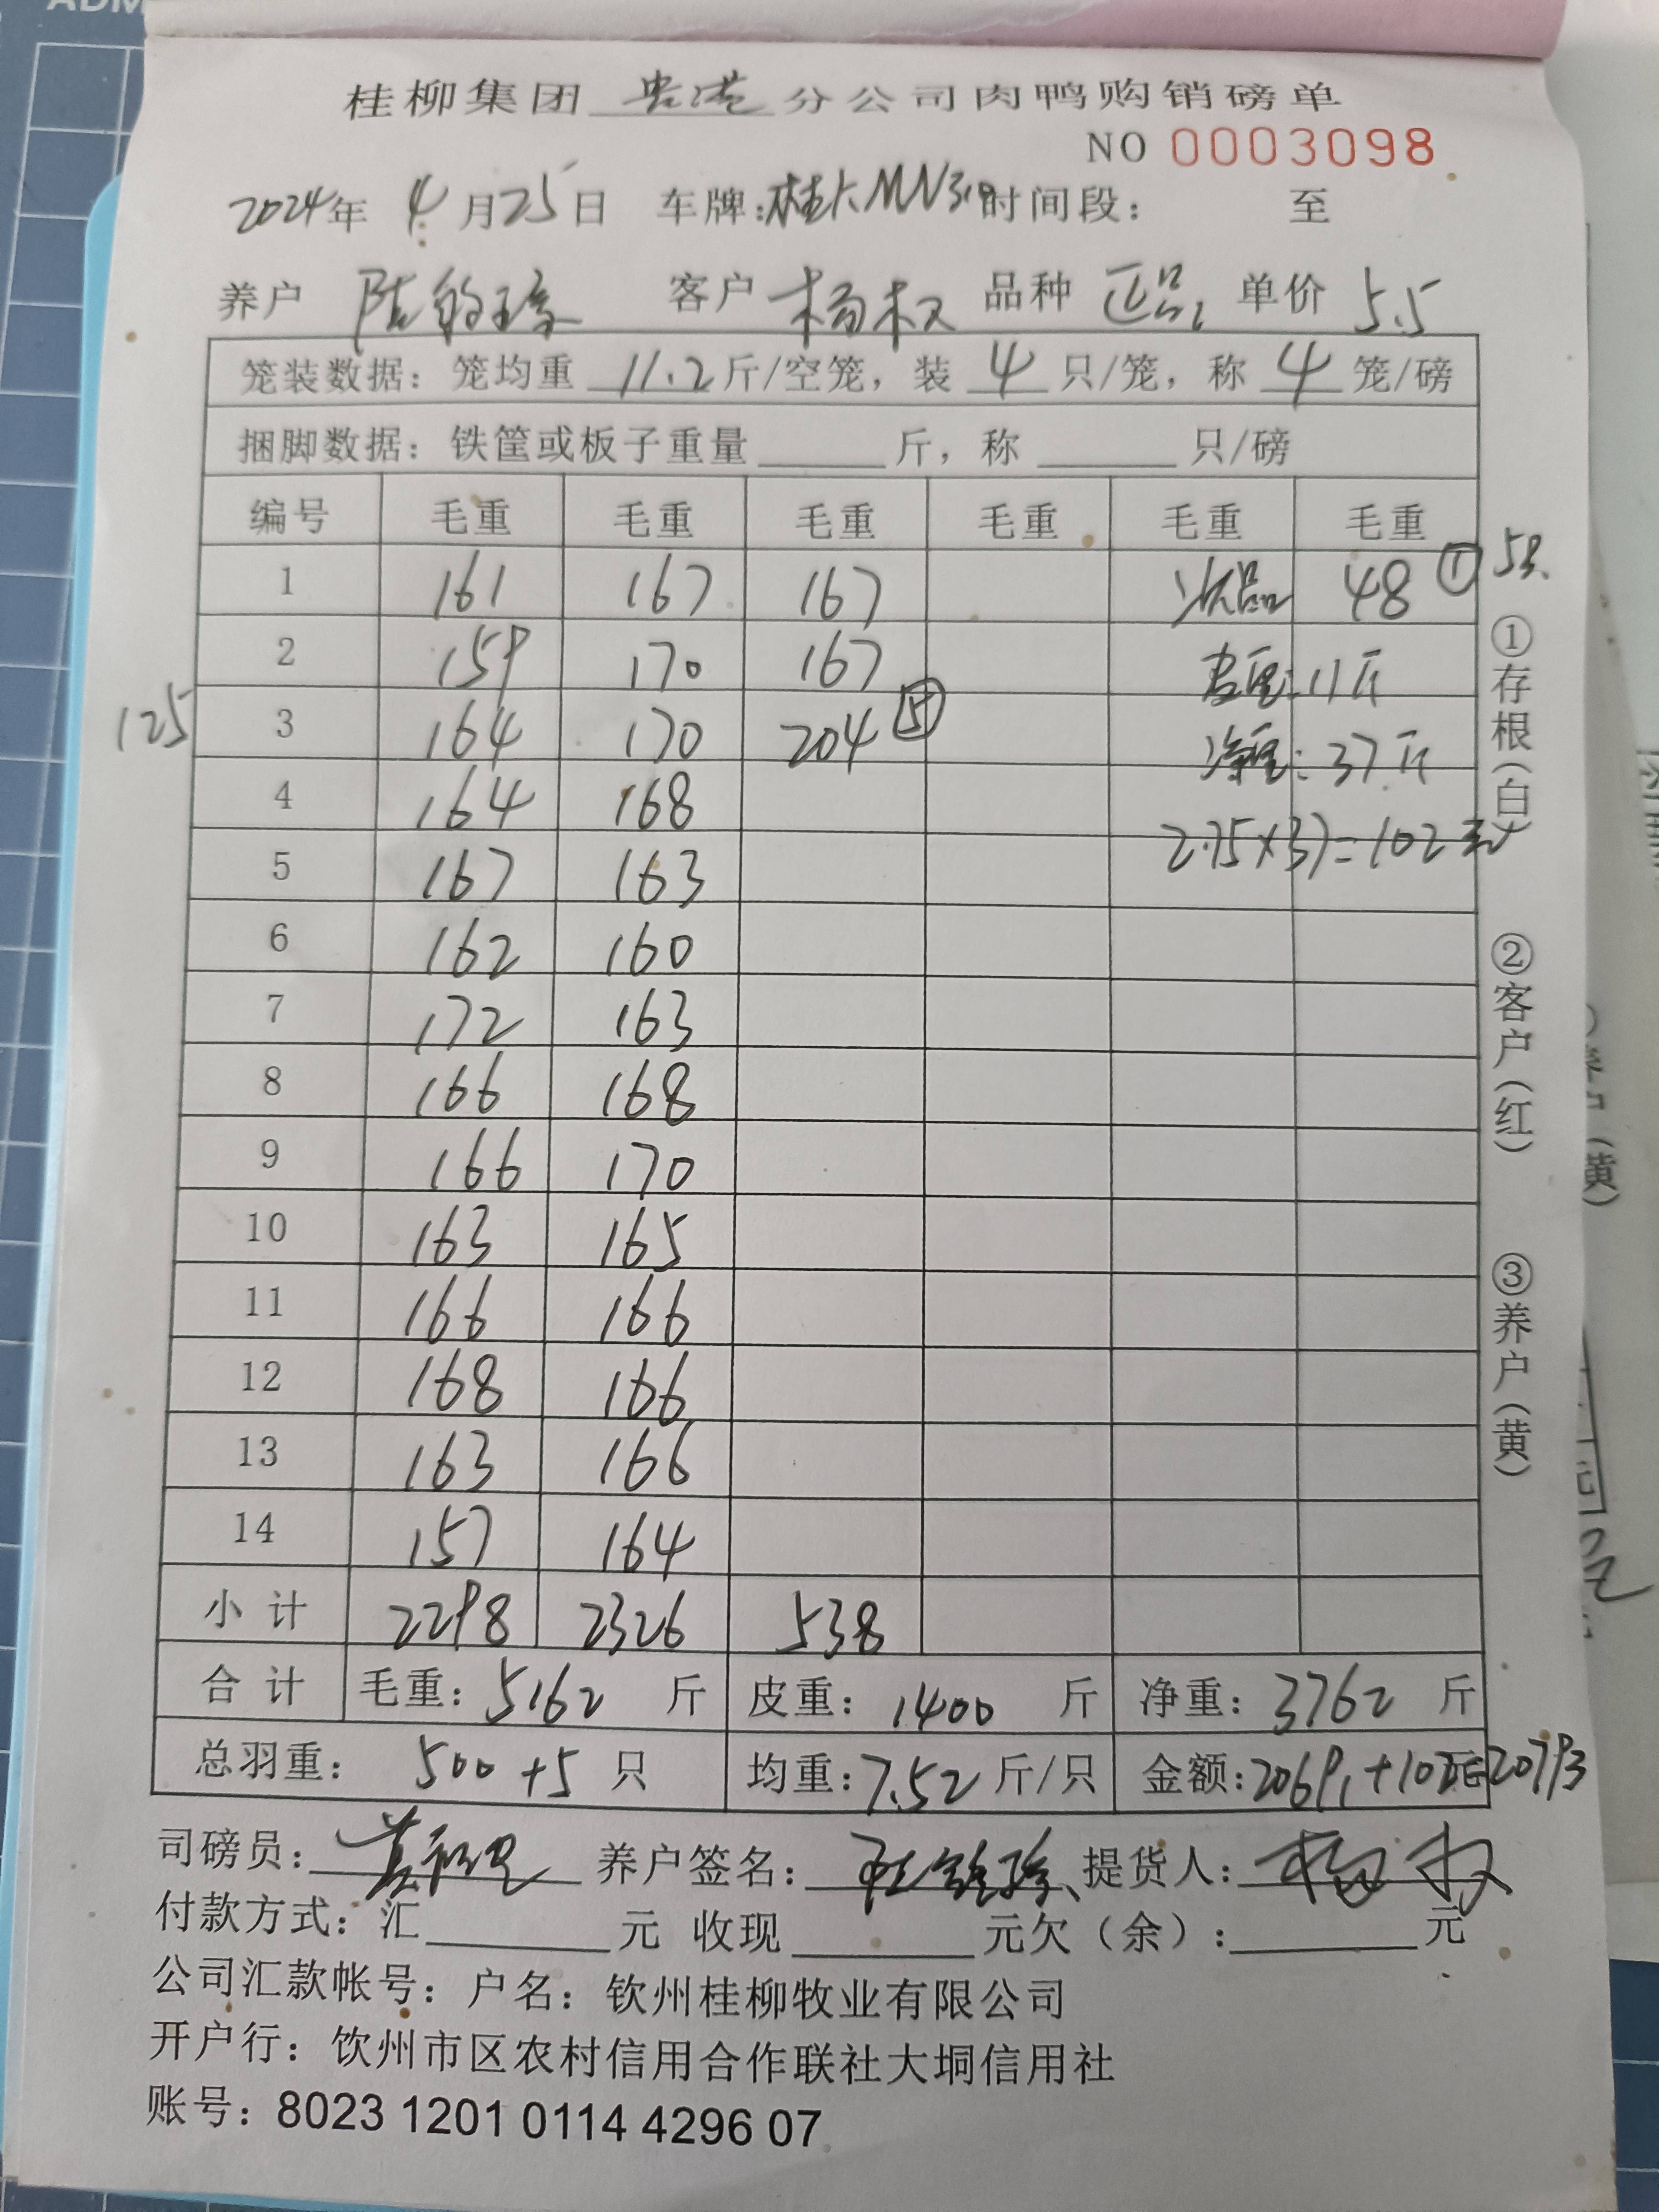 桂柳集团 贵港 分公司肉鸭购销磅单
NO 0003098
2024年 4月25日 车牌: 时间段： 至
养户 客户 杨权 品种 正品 单价 5.5
笼装数据：笼均重 11.2 斤/空笼，装 4 只/笼，称 4 笼/磅
捆脚数据：铁筐或板子重量 斤，称 只/磅
编号 毛重 毛重 毛重 毛重 毛重 毛重
1 161 167 167 次品 48 ① 5只
2 159 170 167 皮重:11斤
125 3 164 170 204 ⑤ 净重:37斤
4 164 168
2.75×37=102元
5 167 163
6 162 160
7 172 163
8 166 168
9 166 170
10 163 165
11 166 166
12 168 166
13 163 166
14 157 164
小计 2298 2326 538
合计 毛重：5162 斤 皮重：1400 斤 净重：3762 斤
总羽重： 500+5 只 均重：7.52 斤/只 金额：20691+102=20793
司磅员： 养户签名： 提货人：杨权
付款方式：汇 元 收现 元欠（余）： 元
公司汇款帐号：户名：钦州桂柳牧业有限公司
开户行：钦州市区农村信用合作联社大垌信用社
账号：8023 1201 0114 4296 07
①存根（白）
②客户（红）
③养户（黄）